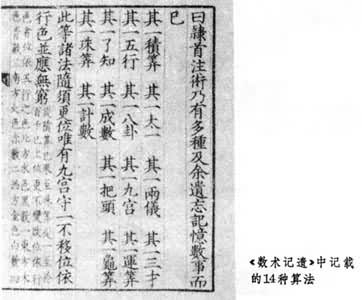 曰隸首注術乃有多種及余遺忘記憶數事而
已
其一積筭 其一太一 其一兩儀 其一三才
其一五行 其一八卦 其一九宮 其一運筭
其一了知 其一成數 其一把頭 其一龜筭
其一珠筭 其一計數
此等諸法隨須更位唯有九宮守一不移位依
行色並應無窮
《数术记遗》中记载
的14种算法